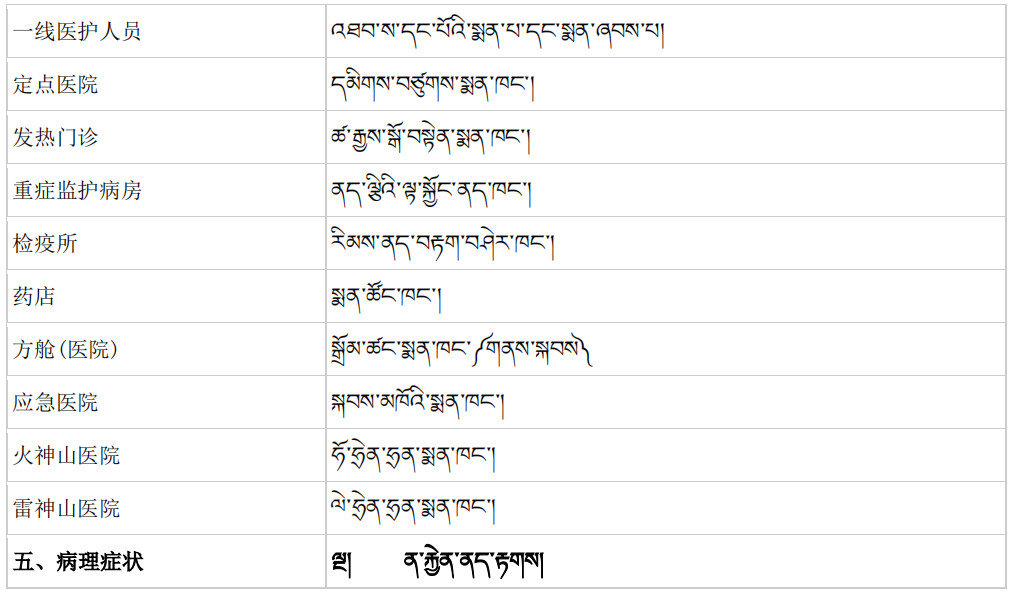 一线医护人员 འཐབ་ས་དང་པོའི་སྨན་པ་དང་སྨན་ཞབས་པ།
定点医院 དམིགས་བཙུགས་སྨན་ཁང་།
发热门诊 ཚ་རྒྱས་སྒོ་བསྟེན་སྨན་ཁང་།
重症监护病房 ནད་ལྕིའི་ལྟ་སྐྱོང་ནད་ཁང་།
检疫所 རིམས་ནད་བརྟག་བཤེར་ཁང་།
药店 སྨན་ཚོང་ཁང་།
方舱(医院) སྒྲོམ་ཚང་སྨན་ཁང་༼གནས་སྐབས༽
应急医院 སྐབས་མཁོའི་སྨན་ཁང་།
火神山医院 ཧོ་ཧྲེན་ཧྲན་སྨན་ཁང་།
雷神山医院 ལེ་ཧྲེན་ཧྲན་སྨན་ཁང་།
五、病理症状 ལྔ། ན་རྐྱེན་ནད་རྟགས།